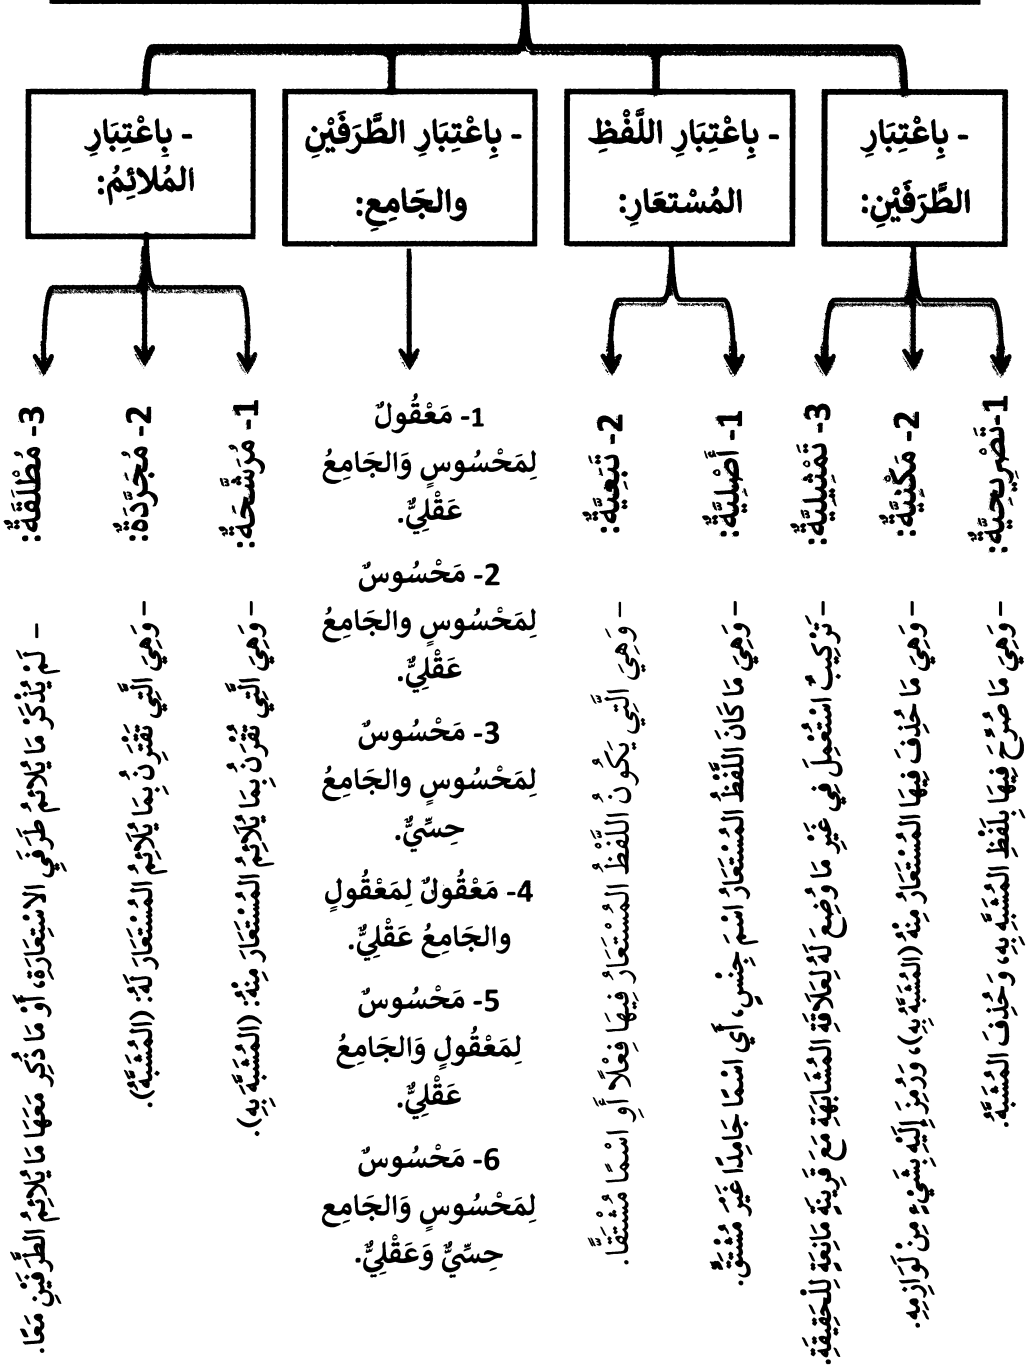 - بِاعْتِبَارِ
الطَّرَفَيْنِ:
- بِاعْتِبَارِ اللَّفْظِ
المُسْتعَارِ:
- بِاعْتِبَارِ الطَّرَفَيْنِ
والجَامِعِ:
- بِاعْتِبَارِ
المُلائِمُ:
1-تَصْرِيحِيَّةٌ:
– وَهِيَ مَا صُرِّحَ فِيهَا بِلَفْظِ المُشَبَّهِ بِهِ، وَحُذِفَ المُشَبَّهُ.
2- مَكْنِيَّةٌ:
– وَهِيَ مَا حُذِفَ فِيهَا المُسْتَعَارُ مِنْهُ (المُشَبَّهُ بِهِ)، وَرُمِزَ إِلَيْهِ بِشَيْءٍ مِنْ لَوَازِمِهِ.
3- تَمْثِيلِيَّةٌ:
– تَرْكِيبٌ اسْتُعْمِلَ فِي غَيْرِ مَا وُضِعَ لَهُ لِعَلَاقَةِ المُشَابَهَةِ مَعَ قَرِينَةٍ مَانِعَةٍ لِلْحَقِيقَةِ.
1- أَصْلِيَّةٌ:
– وَهِيَ مَا كَانَ اللَّفْظُ المُسْتَعَارُ اسْمَ جِنْسٍ، أَي اسْمًا جَامِدًا غَيْرَ مُشْتَقٍّ.
2- تَبَعِيَّةٌ:
– وَهِيَ الَّتِي يَكُونُ اللَّفْظُ المُسْتَعَارُ فِيهَا فِعْلًا أَوِ اسْمًا مُشْتَقًّا.
1- مَعْقُولٌ
لِمَحْسُوسٍ وَالجَامِعُ
عَقْلِيٌّ.
2- مَحْسُوسٌ
لِمَحْسُوسٍ والجَامِعُ
عَقْلِيٌّ.
3- مَحْسُوسٌ
لِمَحْسُوسٍ والجَامِعُ
حِسِّيٌّ.
4- مَعْقُولٌ لِمَعْقُولٍ
والجَامِعُ عَقْلِيٌّ.
5- مَحْسُوسٌ
لِمَعْقُولٍ وَالجَامِعُ
عَقْلِيٌّ.
6- مَحْسُوسٌ
لِمَحْسُوسٍ وَالجَامِع
حِسِّيٌّ وَعَقْلِيٌّ.
1- مُرَشَّحَةٌ:
– وَهِيَ الَّتِي تُقْرَنُ بِمَا يُلَائِمُ المُسْتَعَارَ مِنْهُ: (المُشَبَّهَ بِهِ).
2- مُجَرَّدَةٌ:
– وَهِيَ الَّتِي تَقْتَرِنُ بِمَا يُلَائِمُ المُسْتَعَارَ لَهُ: (المُشَبَّهُ).
3- مُطْلَقَةٌ:
– لَمْ يُذْكَرْ مَا يُلَائِمُ طَرَفَيِ الاسْتِعَارَةِ، أَوْ مَا ذُكِرَ مَعَهَا مَا يُلَائِمُ الطَّرَفَيْنِ مَعًا.